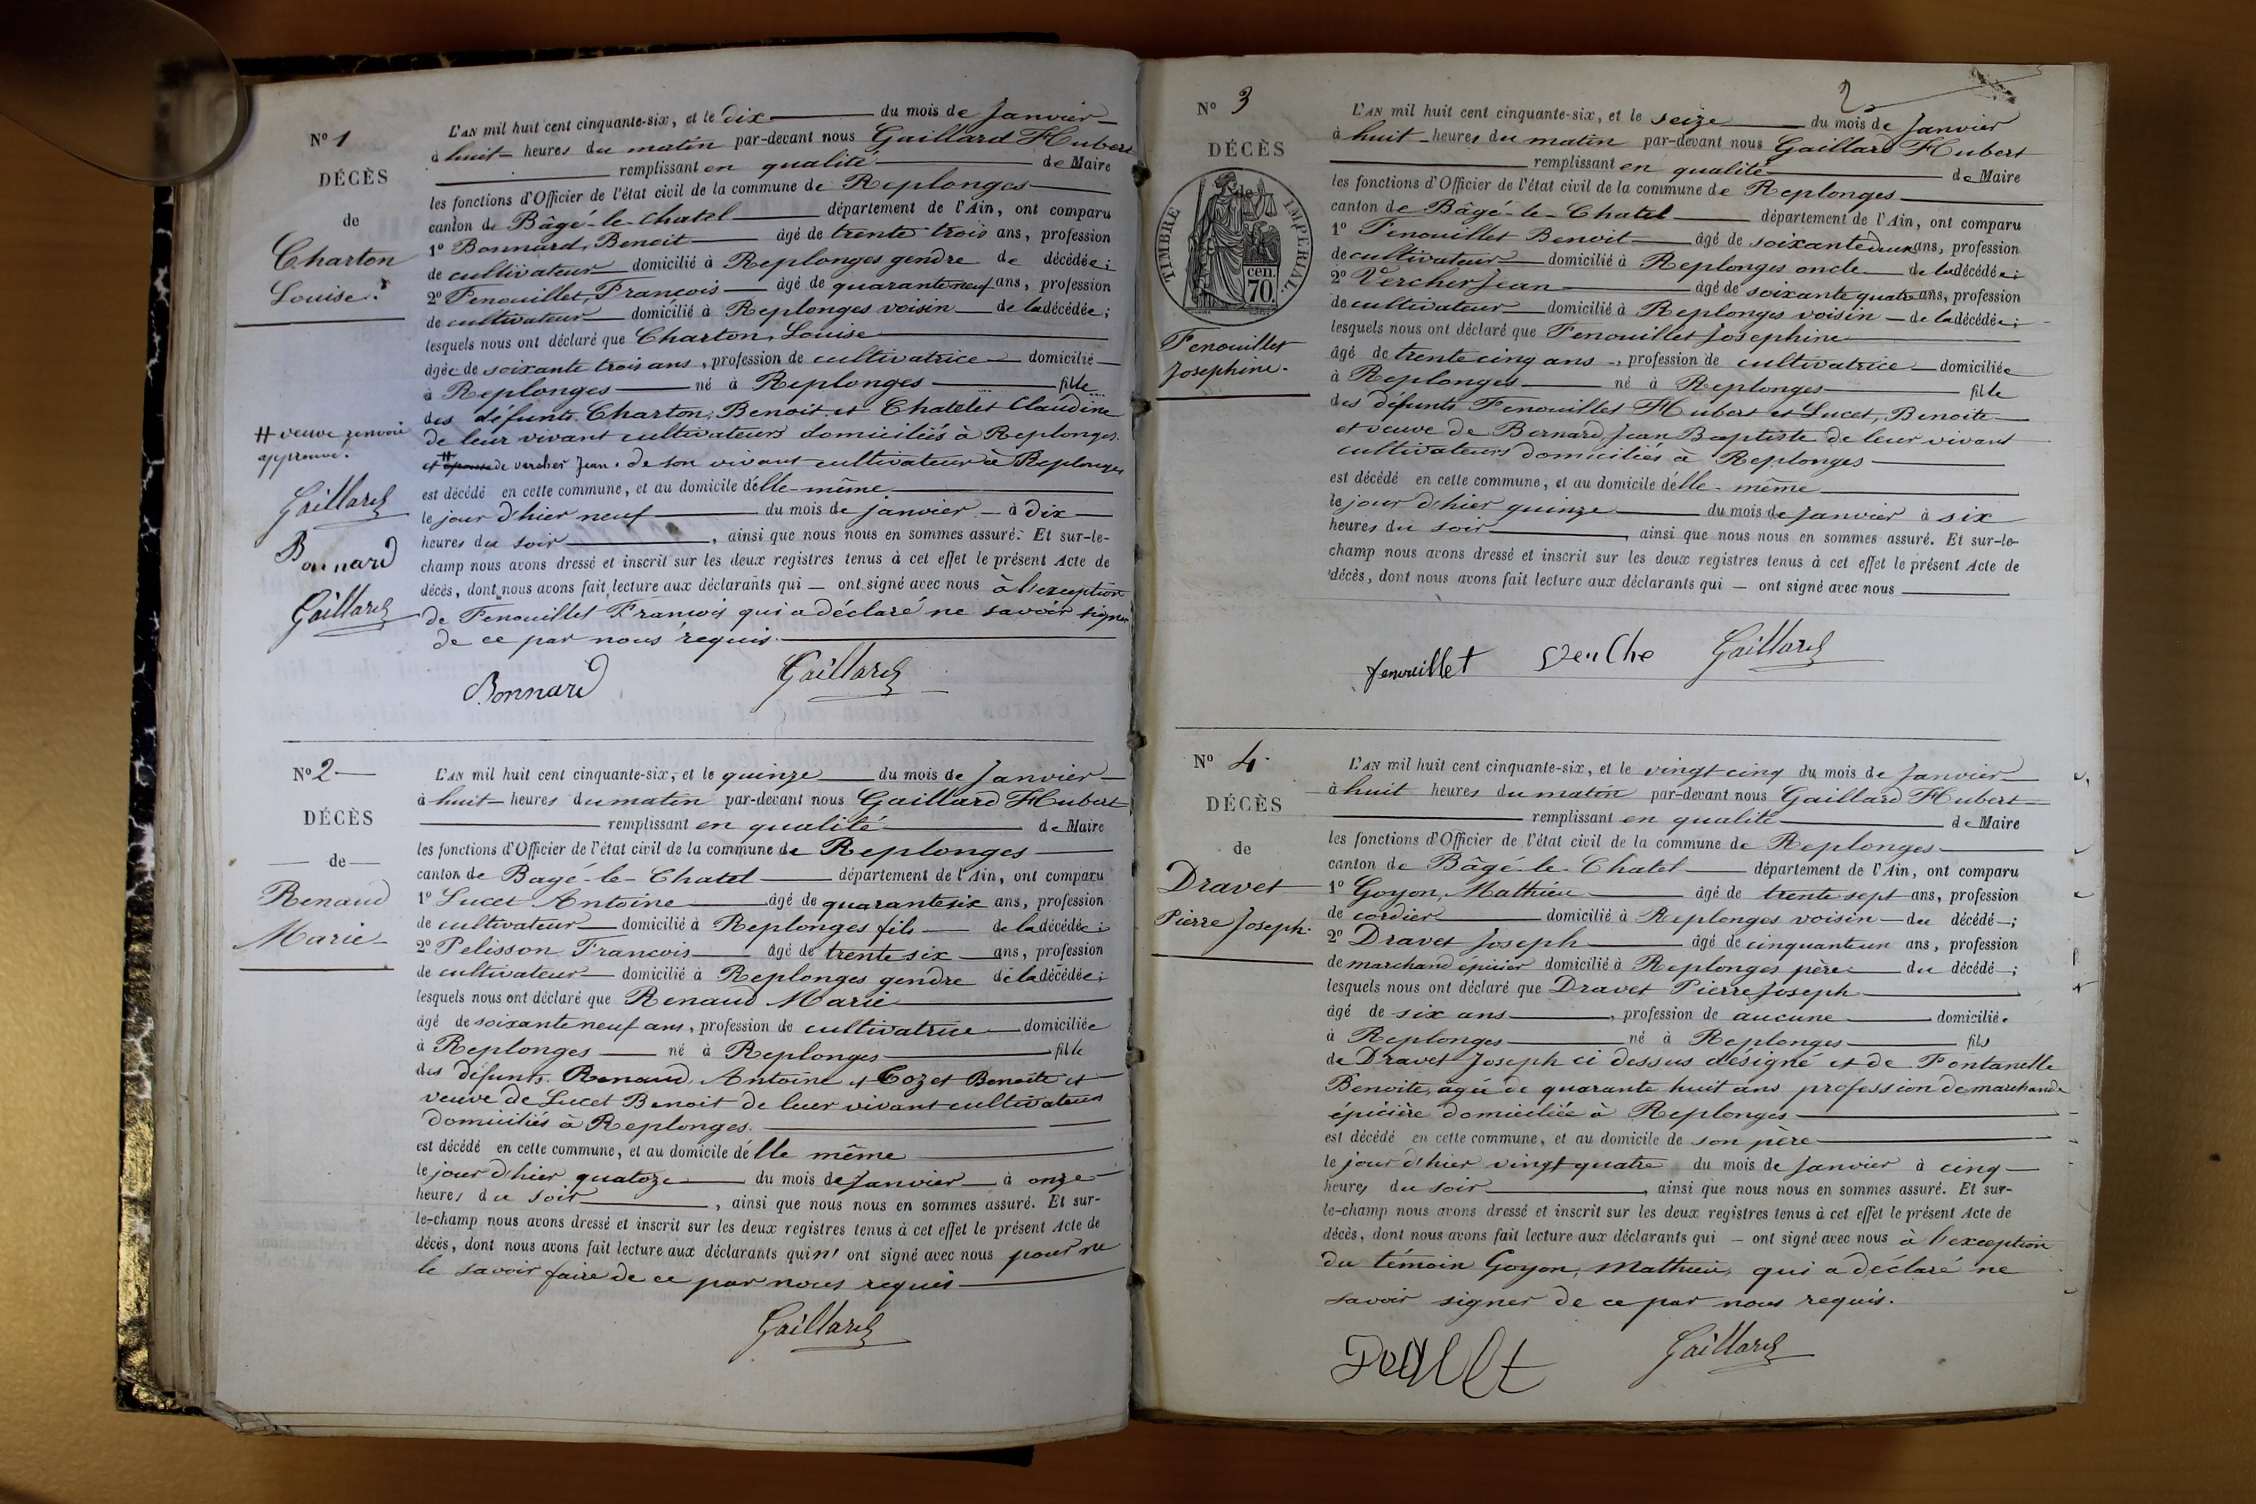 N° 1
DÉCÈS
de
Charton
Louise.
# veuve renvoi
approuvé.
Gaillard
Bonnard
Gaillard
L'AN mil huit cent cinquante-six, et le dix du mois de Janvier
à huit heures du matin par-devant nous Gaillard Hubert
remplissant en qualité de Maire
les fonctions d'Officier de l'état civil de la commune de Replonges
canton de Bâgé-le-Chatel département de l'Ain, ont comparu
1° Bonnard, Benoit âgé de trente trois ans, profession
de cultivateur domicilié à Replonges gendre de décédée;
2° Fenouillet, François âgé de quarante neuf ans, profession
de cultivateur domicilié à Replonges voisin de la décédée;
lesquels nous ont déclaré que Charton, Louise
âgée de soixante trois ans, profession de cultivatrice domicilié
à Replonges né à Replonges fille
des défunts Charton, Benoit et Chatelet Claudine
de leur vivant cultivateurs domiciliés à Replonges.
et # épouse de vercher Jean. de son vivant cultivateur à Replonges
est décédé en cette commune, et au domicile d'elle-même
le jour d'hier neuf du mois de janvier à dix
heures du soir, ainsi que nous nous en sommes assuré. Et sur-le-
champ nous avons dressé et inscrit sur les deux registres tenus à cet effet le présent Acte de
décès, dont nous avons fait lecture aux déclarants qui — ont signé avec nous à l'exception
de Fenouillet François qui a déclaré ne savoir signer
de ce par nous requis.
Bonnard Gaillard
N° 2
DÉCÈS
de
Renaud
Marie
L'AN mil huit cent cinquante-six, et le quinze du mois de Janvier
à huit heures du matin par-devant nous Gaillard Hubert
remplissant en qualité de Maire
les fonctions d'Officier de l'état civil de la commune de Replonges
canton de Bagé-le-Chatel département de l'Ain, ont comparu
1° Lucet Antoine âgé de quarante six ans, profession
de cultivateur domicilié à Replonges fils de la décédée;
2° Pelisson François âgé de trente six ans, profession
de cultivateur domicilié à Replonges gendre de la décédée;
lesquels nous ont déclaré que Renaud Marie
âgé de soixante neuf ans, profession de cultivatrice domiciliée
à Replonges né à Replonges fille
des défunts. Renaud, Antoine et Cozet Benoite et
veuve de Lucet Benoit de leur vivant cultivateurs
domiciliés à Replonges.
est décédé en cette commune, et au domicile d'elle même
le jour d'hier quatoze du mois de Janvier à onze
heures du soir, ainsi que nous nous en sommes assuré. Et sur-
le-champ nous avons dressé et inscrit sur les deux registres tenus à cet effet le présent Acte de
décès, dont nous avons fait lecture aux déclarants qui n' ont signé avec nous pour ne
le savoir faire de ce par nous requis
Gaillard
2
N° 3
DÉCÈS
de
TIMBRE IMPERIAL.
70. cen.
Fenouillet
Josephine.
L'AN mil huit cent cinquante-six, et le seize du mois de Janvier
à huit heures du matin par-devant nous Gaillard Hubert
remplissant en qualité de Maire
les fonctions d'Officier de l'état civil de la commune de Replonges
canton de Bâgé-le-Chatel département de l'Ain, ont comparu
1° Fenouillet Benoit âgé de soixante deux ans, profession
de cultivateur domicilié à Replonges oncle de la décédée;
2° Vercher Jean âgé de soixante quatre ans, profession
de cultivateur domicilié à Replonges voisin de la décédée;
lesquels nous ont déclaré que Fenouillet Josephine
âgé de trente cinq ans, profession de cultivatrice domiciliée
à Replonges né à Replonges fille
des défunts Fenouillet Hubert et Lucet, Benoite
et veuve de Bernard, Jean Baptiste de leur vivant
cultivateurs domiciliés à Replonges
est décédé en cette commune, et au domicile d'elle-même
le jour d'hier quinze du mois de Janvier à six
heures du soir, ainsi que nous nous en sommes assuré. Et sur-le-
champ nous avons dressé et inscrit sur les deux registres tenus à cet effet le présent Acte de
décès, dont nous avons fait lecture aux déclarants qui — ont signé avec nous
fenouillet Gaillard
N° 4.
DÉCÈS
de
Dravet
Pierre Joseph.
L'AN mil huit cent cinquante-six, et le vingt cinq du mois de Janvier
à huit heures du matin par-devant nous Gaillard Hubert
remplissant en qualité de Maire
les fonctions d'Officier de l'état civil de la commune de Replonges
canton de Bâgé-le-Chatel département de l'Ain, ont comparu
1° Goyon, Mathieu âgé de trente sept ans, profession
de cordier domicilié à Replonges voisin du décédé;
2° Dravet Joseph âgé de cinquante un ans, profession
de marchand épicier domicilié à Replonges père du décédé;
lesquels nous ont déclaré que Dravet Pierre Joseph
âgé de six ans, profession de aucune domicilié.
à Replonges né à Replonges fils
de Dravet Joseph ci dessus désigné et de Fontanelle
Benoite, agée de quarante huit ans profession de marchande
épicière domiciliée à Replonges
est décédé en cette commune, et au domicile de son père
le jour d'hier vingt quatre du mois de Janvier à cinq
heures du soir, ainsi que nous nous en sommes assuré. Et sur-
le-champ nous avons dressé et inscrit sur les deux registres tenus à cet effet le présent Acte de
décès, dont nous avons fait lecture aux déclarants qui — ont signé avec nous à l'exception
du témoin Goyon, Mathieu, qui a déclaré ne
savoir signer de ce par nous requis.
Gaillard